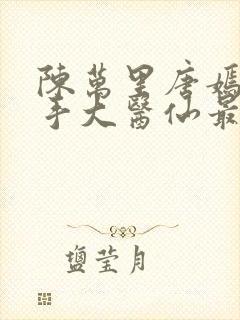 陳萬里唐嫣
手大醫仙最
鹽瑩月